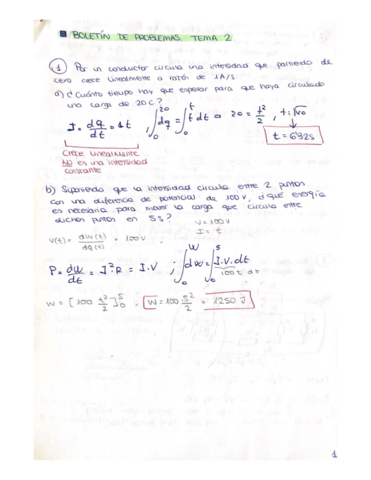 BOLETÍN DE PROBLEMAS TEMA 2
① Por un conductor circula una intensidad que partiendo de
cero crece linealmente a razón de 1A/s
a) ¿Cuánto tiempo hay que esperar para que haya circulado
una carga de 20 C?
I = dq/dt = 1t ; ∫₀²⁰ dq = ∫₀ᵗ t dt → 20 = t²/2 , t = √40
t = 6'32s
Crece linealmente
NO es una intensidad
constante
b) Suponiendo que la intensidad circula entre 2 puntos
con una diferencia de potencial de 100V, ¿qué energía
es necesaria para mover la carga que circula entre
dichos puntos en 5s?
V = 100V
I = t
V(t) = dW(t)/dq(t) = 100V
P = dW/dt = I²·R = I·V ; ∫₀ᵂ dW = ∫₀⁵ I.V.dt
100t dt
W = [100 t²/2]₀⁵ ; W = 100 5²/2 = 1250 J
1